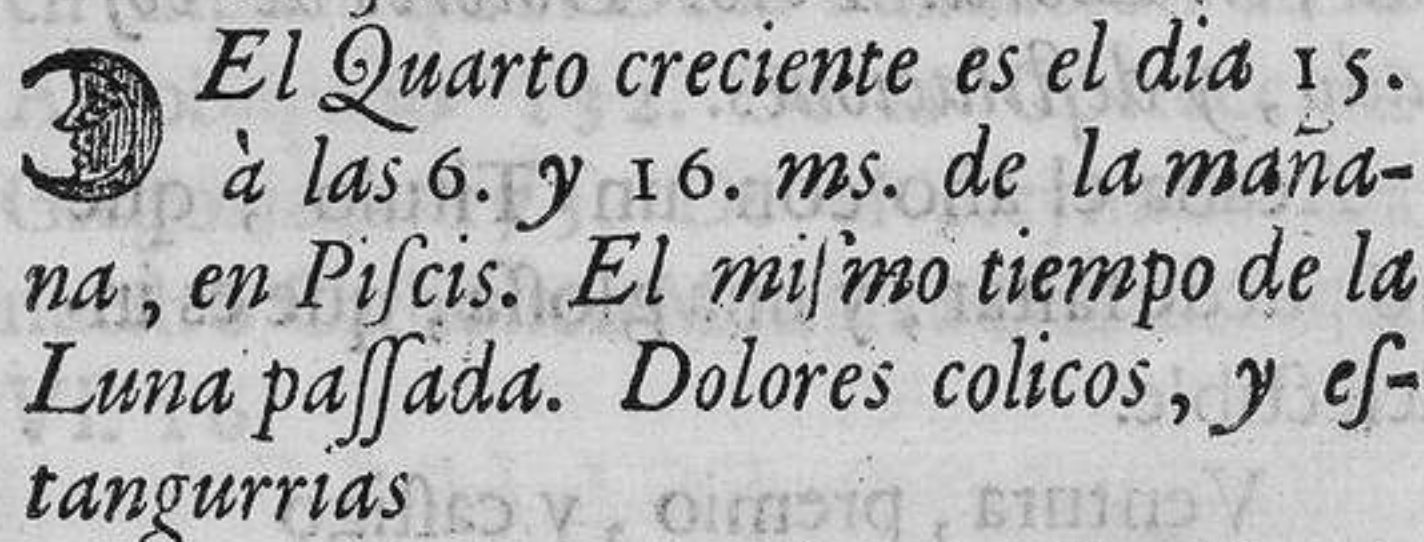 El Quarto creciente es el dia 15.
à las 6. y 16. ms. de la maña-
na, en Piſcis. El miſmo tiempo de la
Luna paſſada. Dolores colicos, y eſ-
tangurrias